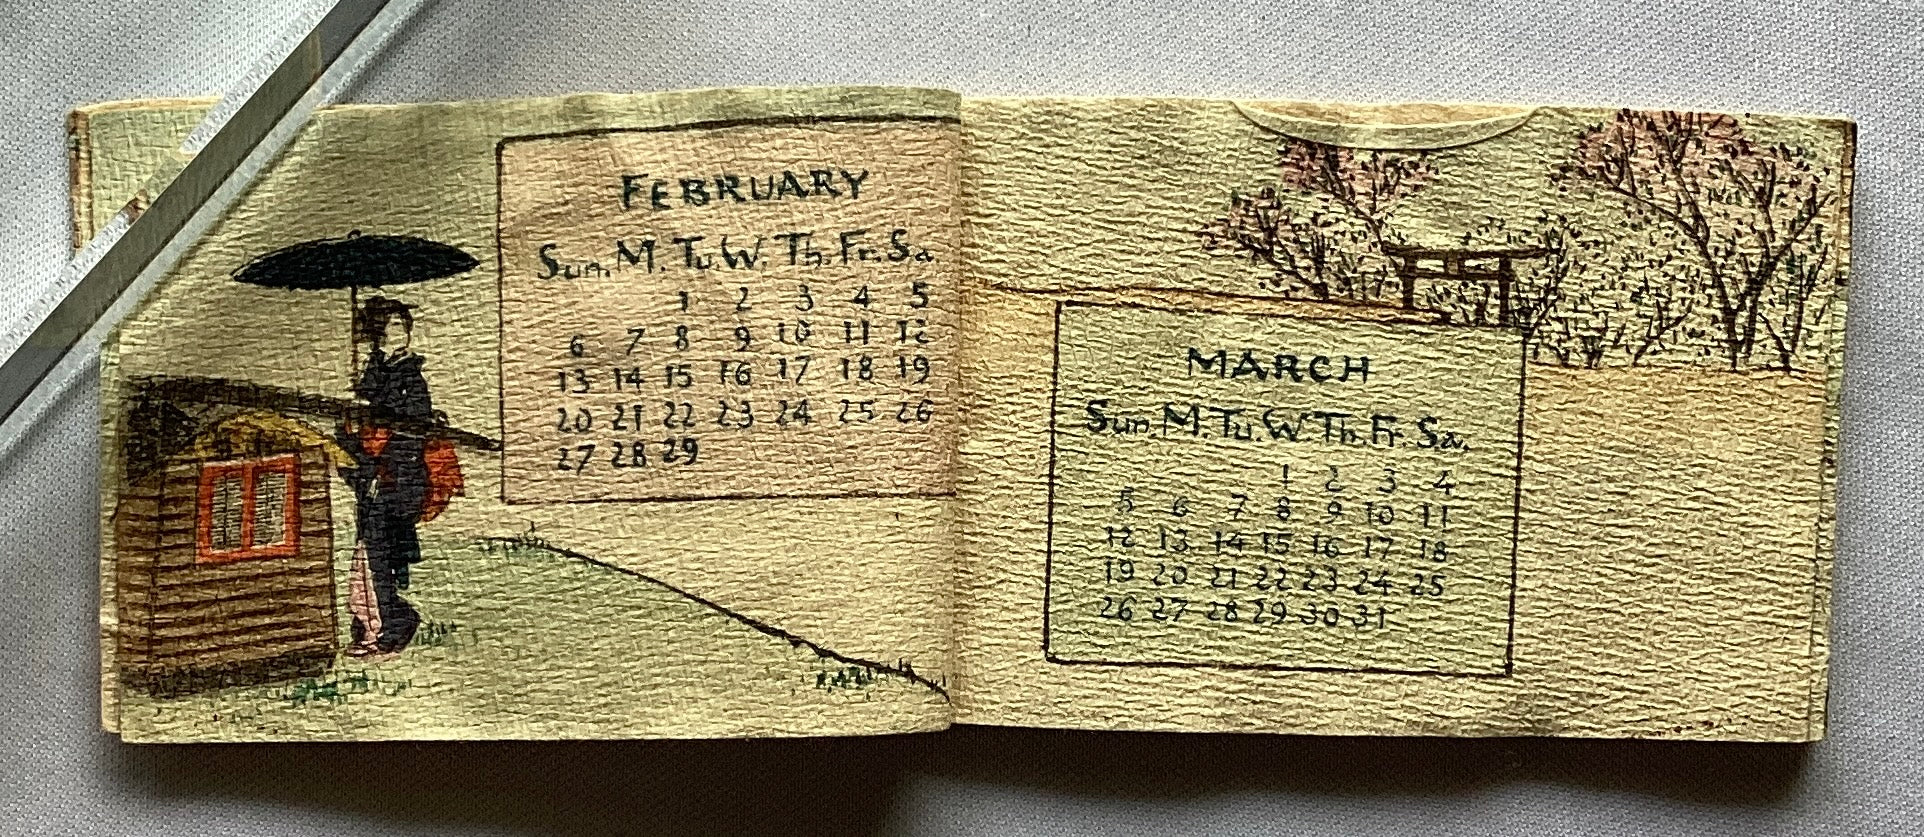 FEBRUARY
Sun. M. Tu. W. Th. Fr. Sa.
1 2 3 4 5
6 7 8 9 10 11 12
13 14 15 16 17 18 19
20 21 22 23 24 25 26
27 28 29
MARCH
Sun. M. Tu. W. Th. Fr. Sa.
1 2 3 4
5 6 7 8 9 10 11
12 13 14 15 16 17 18
19 20 21 22 23 24 25
26 27 28 29 30 31